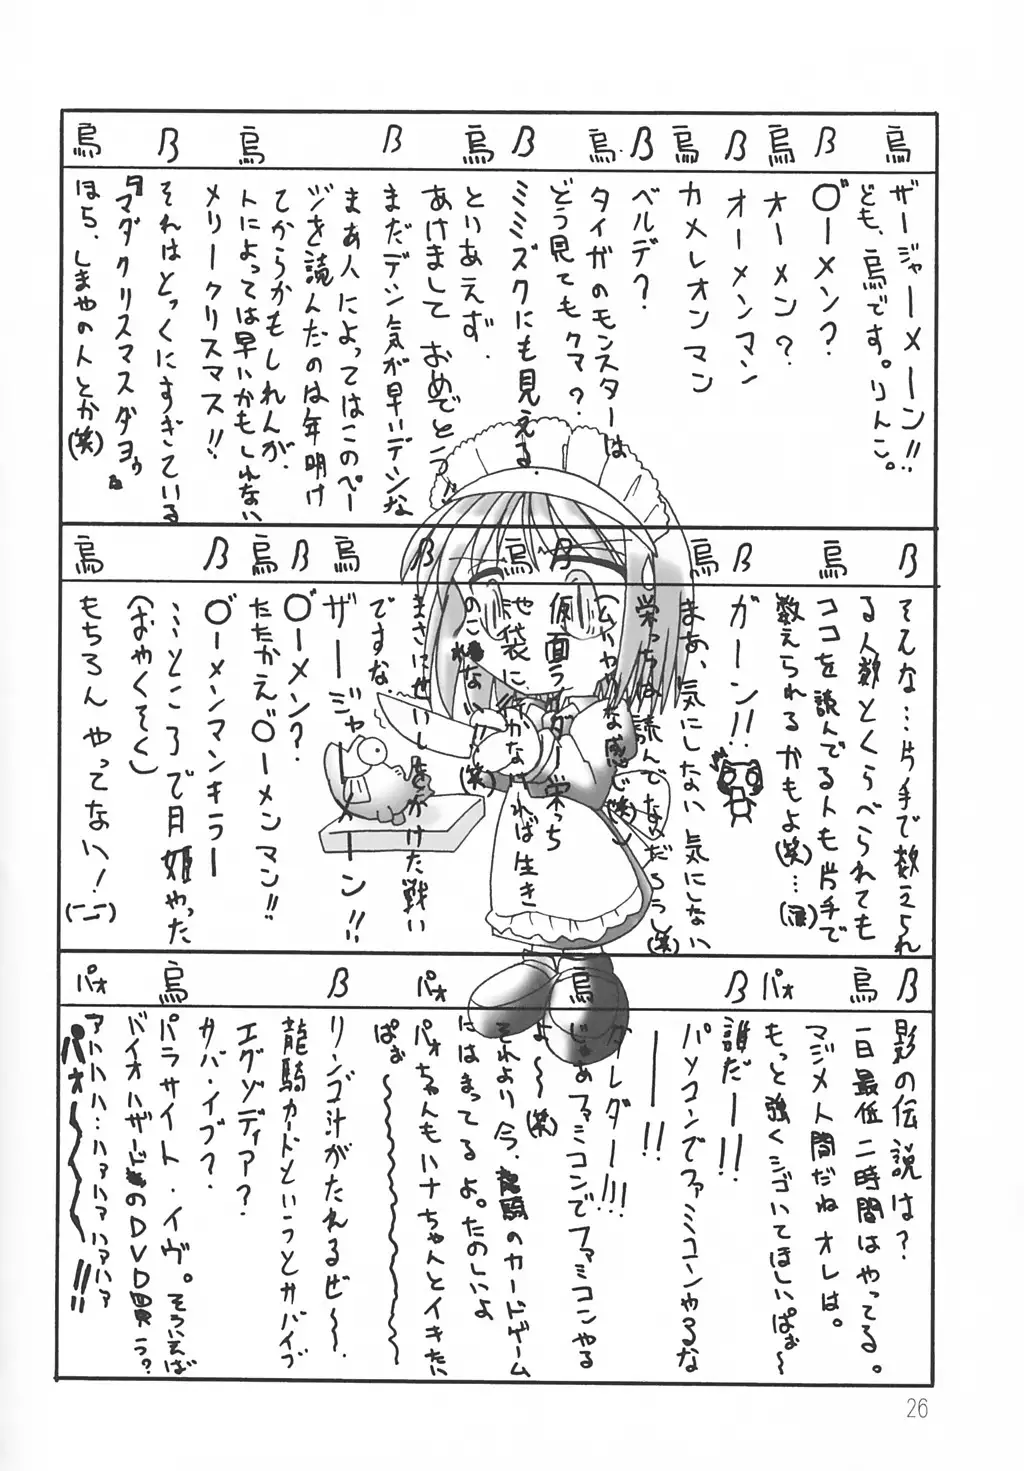 烏
ザージャーメーン!!
ども、烏です。りんこ。
β
〇゛ーメン?
烏
オーメン?
β
オーメンマン
烏
カメレオンマン
β
ベルデ?
烏
タイガのモンスターは
どう見てもクマ?
β
ミミズクにも見える
烏
といあえず、
あけまして おめでとう
β
まだデジ気が早いデジな
烏
まあ人によってはこのペー
ジを読んだのは年明け
てからかもしれんが、
人によっては早いかもしれない
メリークリスマス!!
β
それはとっくにすぎている
『マダクリスマスダヨゥ』
烏
ほら、しまやの人とか(笑)
β
そんな…片手で数えられ
る人数とくらべられても
烏
ココを読んでる人も片手で
数えられるかもよ(笑)…(涙)
β
ガーン!!
烏
まあ、気にしない気にしない
栄っちは読んでなめだろうし(笑)
(ムハァな感じで(笑))
β
仮面ライダー栄っち
烏
池袋に行かなければ生き
のこれない(笑)
β
まさにせいしをかけた戦い
ですな
烏
ザージャーメーン!!
β
〇゛ーメン?
烏
たたかえ〇゛ーメンマン!!
β
〇゛ーメンマンキラー
…ところで月姫やった
(おやくそく)
烏
もちろんやってない!(ーーー)
β
影の伝説は?
烏
一日最低二時間はやってる。
マジメ人間だねオレは。
パオ
もっと強くシゴいてほしいぱぉ〜
β
誰だー!!
パソコンでファミコンやるな
ー!!
烏
じゃあファミコンでファミコンやる
よ〜〜(笑)
それより今、龍騎のカードゲーム
にはまってるよ。たのしいよ
パオ
パオちゃんもハナちゃんとイキたい
ぱぉ〜〜
β
リンゴ汁がたれるぜ〜〜。
龍騎カードというとサバイブ
エグゾディア?
サバ・イブ?
烏
パラサイト・イヴ。そういえば
バイオハザードのDVD買う?
パオ
アハハハ…ハァハァハァハァ
パオーーー!!
26